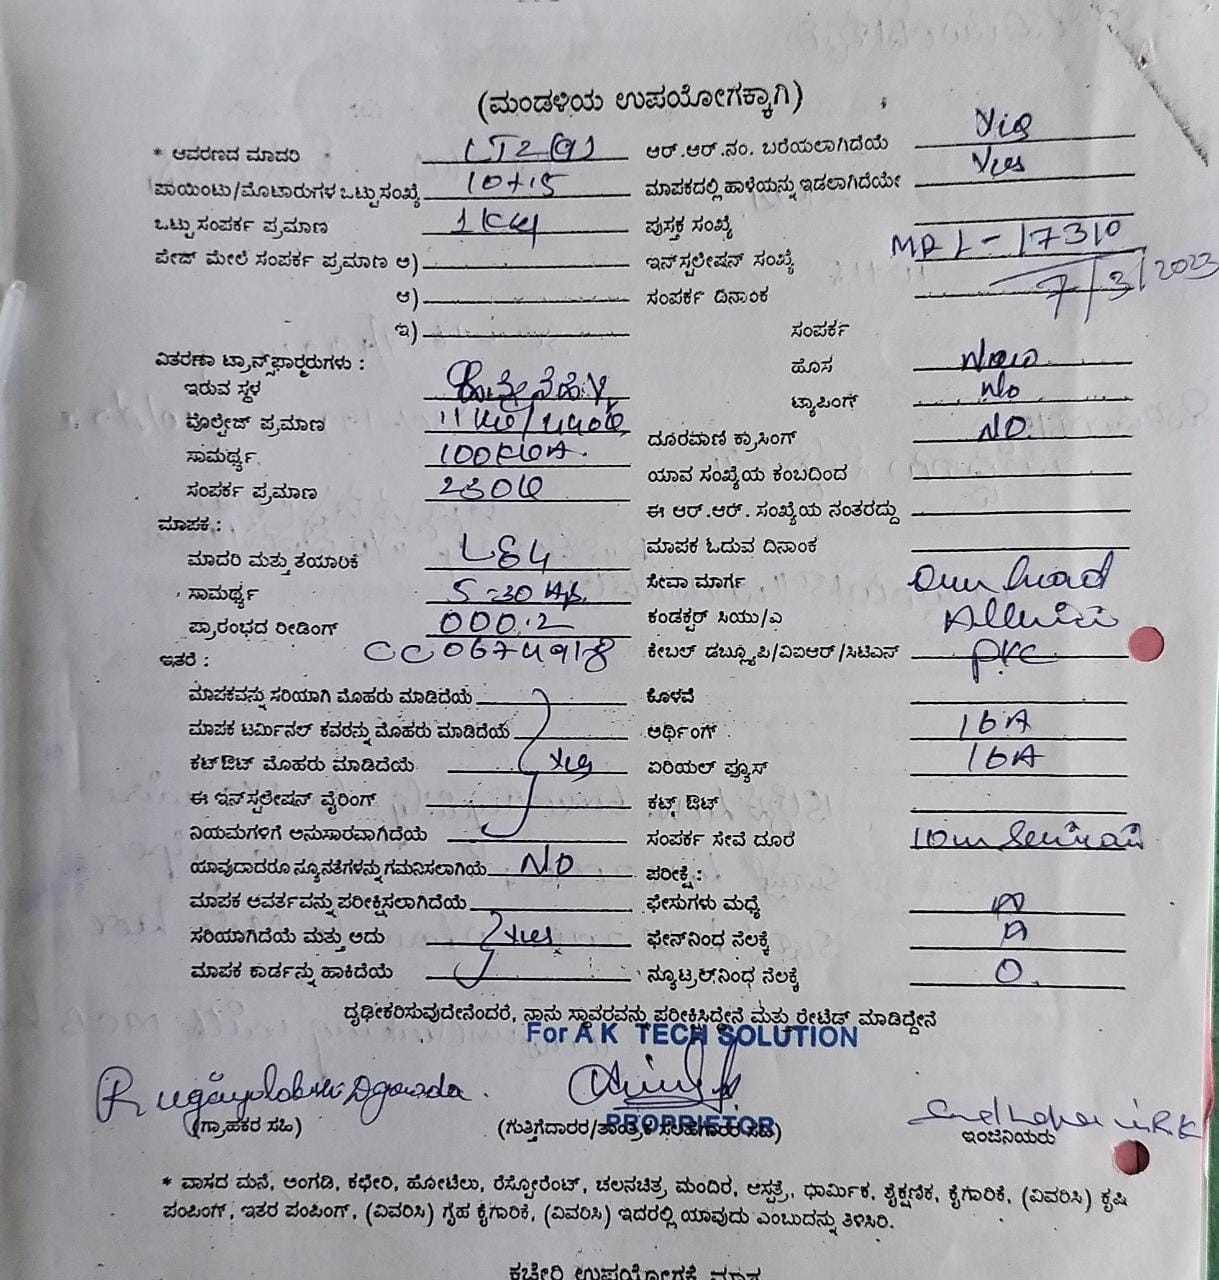 (ಮಂಡಳಿಯ ಉಪಯೋಗಕ್ಕಾಗಿ)
* ಆವರಣದ ಮಾದರಿ LT2(a) ಆರ್.ಆರ್.ನಂ. ಬರೆಯಲಾಗಿದೆಯೆ Yes
ಪಾಯಿಂಟು/ಮೋಟಾರುಗಳ ಒಟ್ಟು ಸಂಖ್ಯೆ 10+15 ಮಾಪಕದಲ್ಲಿ ಹಾಳೆಯನ್ನು ಇಡಲಾಗಿದೆಯೇ Yes
ಒಟ್ಟು ಸಂಪರ್ಕ ಪ್ರಮಾಣ 1KW ಪುಸ್ತಕ ಸಂಖ್ಯೆ
ಪೇಜ್ ಮೇಲೆ ಸಂಪರ್ಕ ಪ್ರಮಾಣ ಅ) ಇನ್‌ಸ್ಟಲೇಷನ್ ಸಂಖ್ಯೆ MRL-17310
ಆ) ಸಂಪರ್ಕ ದಿನಾಂಕ 7/3/2023
ಇ) ಸಂಪರ್ಕ
ವಿತರಣಾ ಟ್ರಾನ್ಸ್‌ಫಾರ್ಮರುಗಳು : ಹೊಸ New
ಇರುವ ಸ್ಥಳ ಟ್ಯಾಪಿಂಗ್ No
ವೊಲ್ಟೇಜ್ ಪ್ರಮಾಣ 11KV/440V ದೂರವಾಣಿ ಕ್ರಾಸಿಂಗ್ NO
ಸಾಮರ್ಥ್ಯ 100KVA. ಯಾವ ಸಂಖ್ಯೆಯ ಕಂಬದಿಂದ
ಸಂಪರ್ಕ ಪ್ರಮಾಣ 230V ಈ ಆರ್.ಆರ್. ಸಂಖ್ಯೆಯ ನಂತರದ್ದು
ಮಾಪಕ : ಮಾಪಕ ಓದುವ ದಿನಾಂಕ
ಮಾದರಿ ಮತ್ತು ತಯಾರಿಕೆ ಸೇವಾ ಮಾರ್ಗ Over head
ಸಾಮರ್ಥ್ಯ 5-30 ಕಂಡಕ್ಟರ್ ಸಿಯು/ಎ
ಪ್ರಾರಂಭದ ರೀಡಿಂಗ್ 000.2 ಕೇಬಲ್ ಡಬ್ಲ್ಯೂಪಿ/ವಿಐಆರ್/ಸಿಟಿಎಸ್ PVC
ಇತರೆ : CC0674918
ಮಾಪಕವನ್ನು ಸರಿಯಾಗಿ ಮೊಹರು ಮಾಡಿದೆಯೆ ಕೊಳವೆ
ಮಾಪಕ ಟರ್ಮಿನಲ್ ಕವರನ್ನು ಮೊಹರು ಮಾಡಿದೆಯೆ ಅರ್ಥಿಂಗ್ 16A
ಕಟ್‌ಔಟ್ ಮೊಹರು ಮಾಡಿದೆಯೆ Yes ಏರಿಯಲ್ ಫ್ಯೂಸ್ 16A
ಈ ಇನ್‌ಸ್ಟಲೇಷನ್ ವೈರಿಂಗ್ ಕಟ್ ಔಟ್
ನಿಯಮಗಳಿಗೆ ಅನುಸಾರವಾಗಿದೆಯೆ ಸಂಪರ್ಕ ಸೇವೆ ದೂರ 10m
ಯಾವುದಾದರೂ ನ್ಯೂನತೆಗಳನ್ನು ಗಮನಿಸಲಾಗಿಯೆ NO ಪರೀಕ್ಷೆ :
ಮಾಪಕ ಆವರ್ತವನ್ನು ಪರೀಕ್ಷಿಸಲಾಗಿದೆಯೆ ಫೇಸುಗಳು ಮಧ್ಯೆ
ಸರಿಯಾಗಿದೆಯೆ ಮತ್ತು ಅದು Yes ಫೇಸ್‌ನಿಂದ ನೆಲಕ್ಕೆ
ಮಾಪಕ ಕಾರ್ಡನ್ನು ಹಾಕಿದೆಯೆ ನ್ಯೂಟ್ರಲ್‌ನಿಂಧ ನೆಲಕ್ಕೆ 0.
ದೃಢೀಕರಿಸುವುದೇನೆಂದರೆ, ನಾನು ಸ್ಥಾವರವನ್ನು ಪರೀಕ್ಷಿಸಿದ್ದೇನೆ ಮತ್ತು ರೇಟೆಡ್ ಮಾಡಿದ್ದೇನೆ
For A K TECH SOLUTION
(ಗ್ರಾಹಕರ ಸಹಿ) (ಗುತ್ತಿಗೆದಾರರ/ತಾಂತ್ರಿಕ ಸಲಹೆಗಾರರ ಸಹಿ) ಇಂಜಿನಿಯರು
PROPRIETOR
* ವಾಸದ ಮನೆ, ಅಂಗಡಿ, ಕಛೇರಿ, ಹೋಟೆಲು, ರೆಸ್ಟೋರೆಂಟ್, ಚಲನಚಿತ್ರ ಮಂದಿರ, ಆಸ್ಪತ್ರೆ, ಧಾರ್ಮಿಕ, ಶೈಕ್ಷಣಿಕ, ಕೈಗಾರಿಕೆ, (ವಿವರಿಸಿ) ಕೃಷಿ
ಪಂಪಿಂಗ್, ಇತರ ಪಂಪಿಂಗ್, (ವಿವರಿಸಿ) ಗೃಹ ಕೈಗಾರಿಕೆ, (ವಿವರಿಸಿ) ಇದರಲ್ಲಿ ಯಾವುದು ಎಂಬುದನ್ನು ತಿಳಿಸಿರಿ.
ಕಚೇರಿ ಉಪಯೋಗಕ್ಕೆ ಮಾತ್ರ